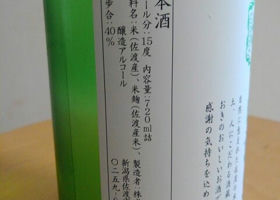 人にこだわる酒蔵
おきのおいしいお酒
感謝の気持ちを込め
本酒
ール分:15度 内容量:720ml詰
料名:米(佐渡産)、米麹(佐渡産)、製造者 株
醸造アルコール
歩合:40%
新潟県佐渡
〇二五九